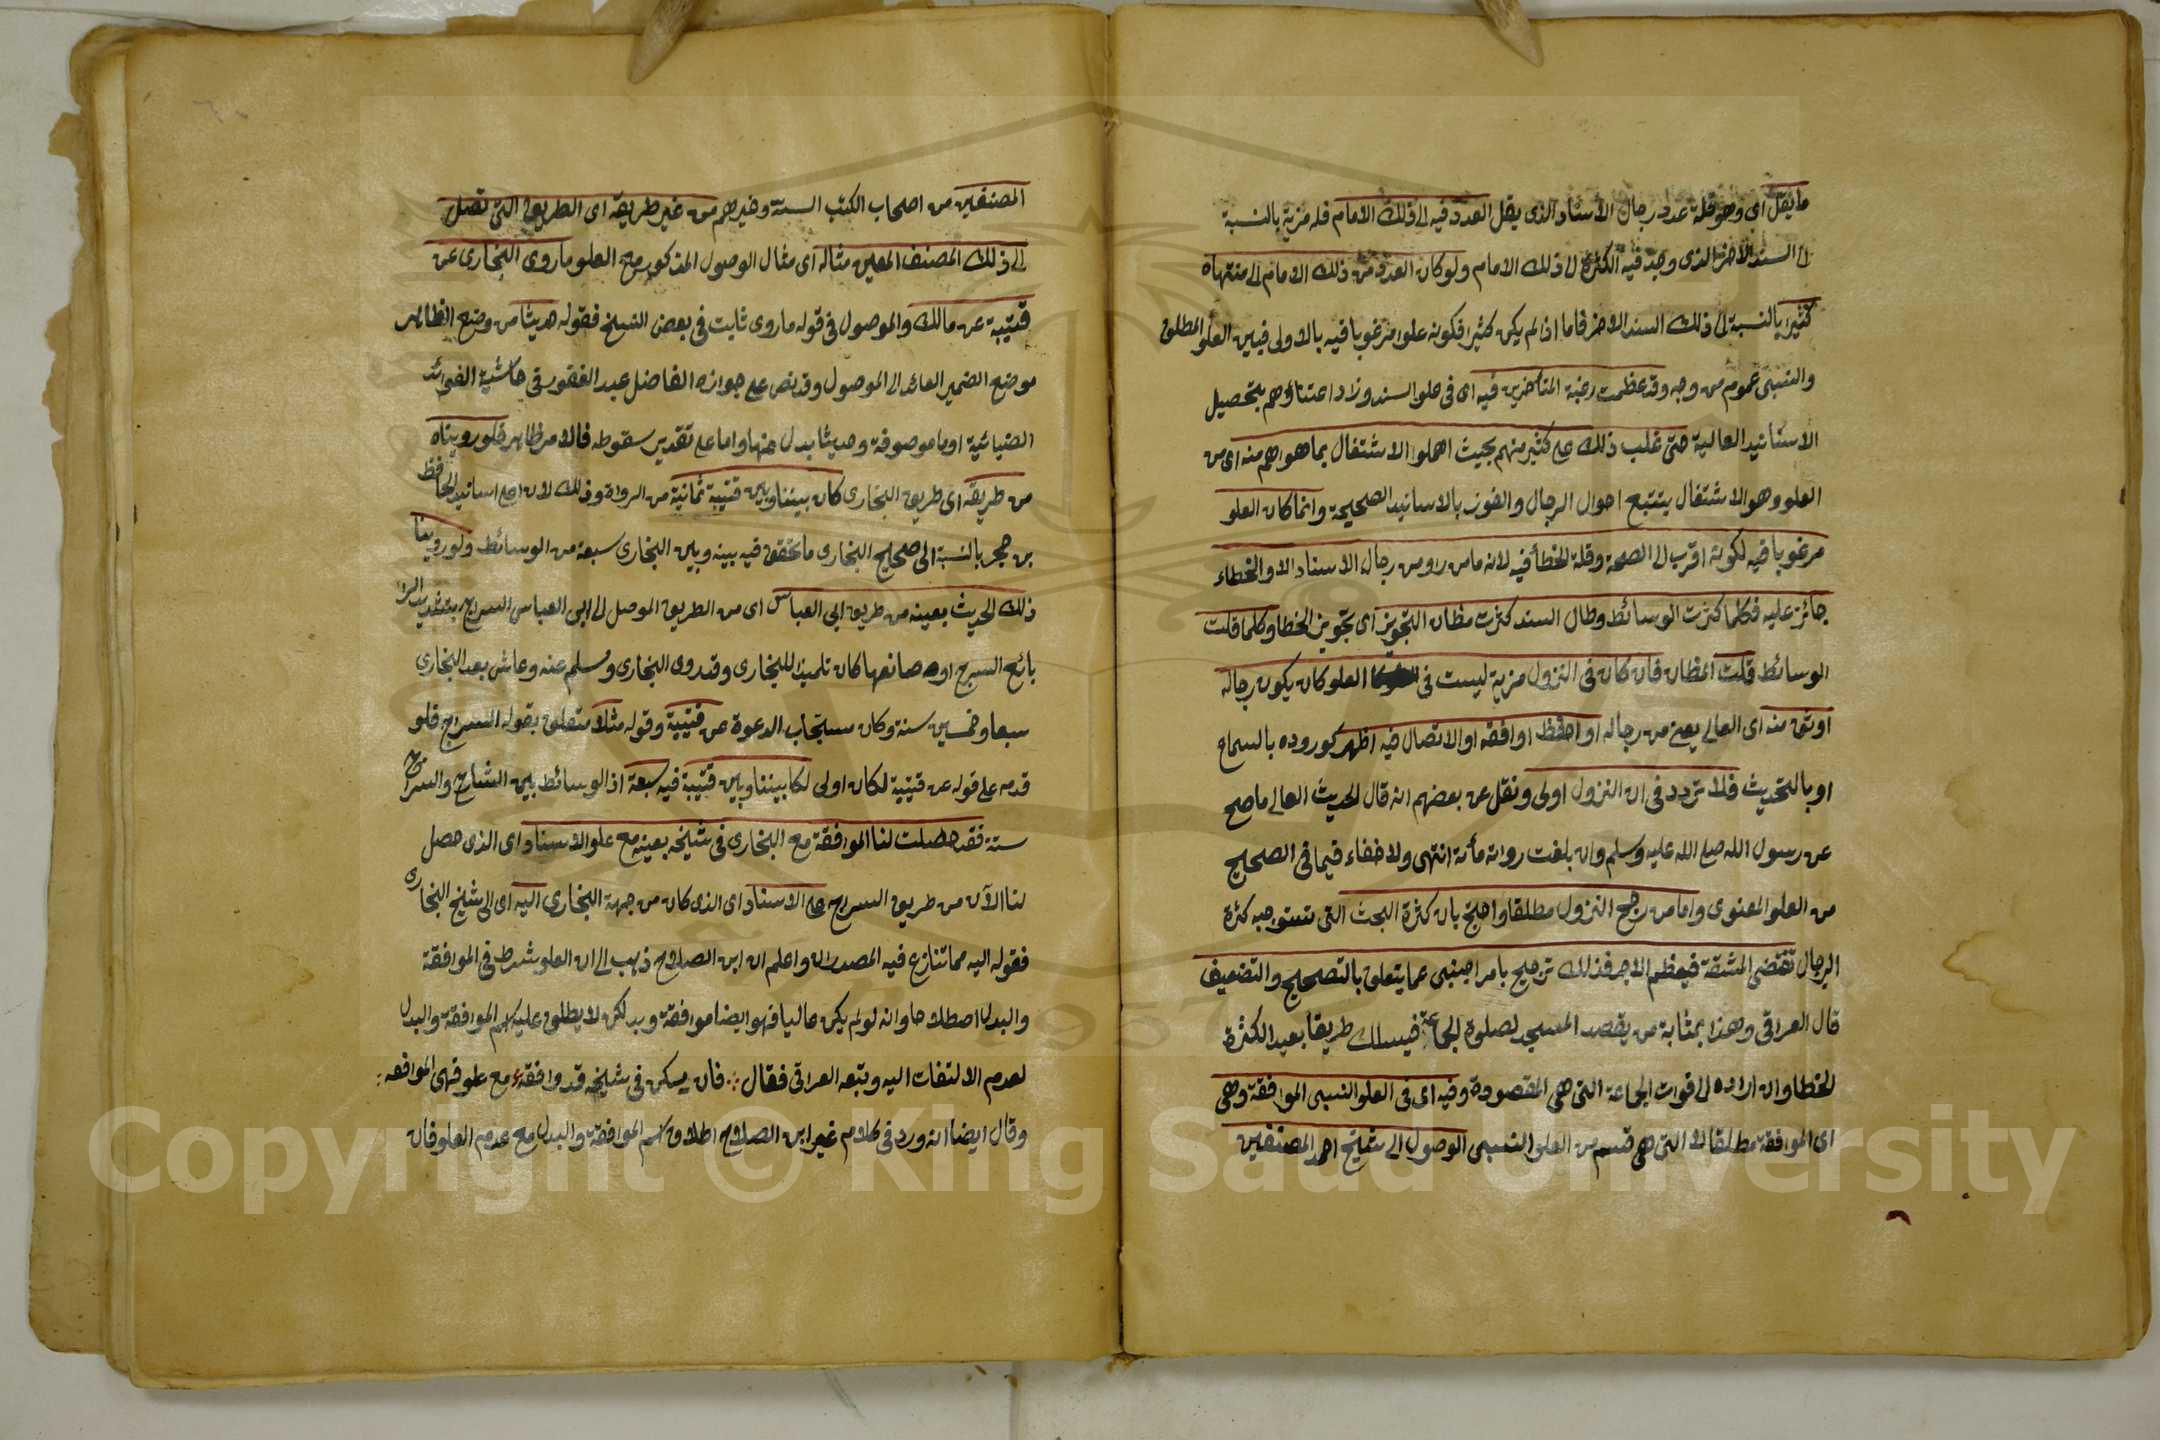 ما يقل اى وهو قلة عدد رجال الاسناد الذى يقل العدد فيه الى ذلك الامام فله مزية بالنسبة
الى السند الاخر الذى وجد فيه الكثرة الى ذلك الامام ولو كان العدد من ذلك الامام الى منتهاه
كثيرا بالنسبة الى ذلك السند الاخر فاما اذا لم يكن كثيرا فكونه علوا مرغوبا فيه بالاولى فبين العلو المطلق
والنسبى عموم من وجه وقد عظمت رغبة المتاخرين فيه اى فى علو السند وزاد اعتناؤهم بتحصيل
الاسانيد العالية حتى غلب ذلك على كثير منهم بحيث اهملوا الاشتغال بما هو اهم منه اى من
العلو وهو الاشتغال بتتبع احوال الرجال والفوز بالاسانيد الصحيحة وانما كان العلو
مرغوبا فيه لكونه اقرب الى الصحة وقلة الخطأ فيه لانه ما من راو من رجال الاسناد الا والخطاء
جائز عليه فكلما كثرت الوسائط وطال السند كثرت مظان التجويز اى تجويز الخطا وكلما قلت
الوسائط قلت المظان فان كان فى النزول مزية ليست فى العلو كان يكون رجاله
اوثق منه اى العالى يعنى من رجاله او احفظ او افقه او الاتصال فيه اظهر كوروده بالسماع
او بالتحديث فلا تردد فى ان النزول اولى ونقل عن بعضهم انه قال الحديث العالى ما صح
عن رسول الله صلى الله عليه وسلم وان بلغت رواته مأته انتهى ولا خفاء فيما فى الصحيح
من العلو المعنوى واما من رجح النزول مطلقا واحتج بان كثرة البحث التى تستوجبه كثرة
الرجال تقتضى المشقة فيعظم الاجر فذلك ترجيح بامر اجنبى عما يتعلق بالتصحيح والتضعيف
قال العراقى وهذا بمثابة من يقصد المسجد لصلوة الجماعة فيسلك طريقا بعيدا لكثرة
الخطا وان اداه الى فوات الجماعة التى هى المقصودة وفيه اى فى العلو النسبى الموافقة وهى
اى الموافقة مطلقا لا التى هى قسم من العلو النسبى الوصول الى شيخ احد المصنفين
المصنفين من اصحاب الكتب الستة وغيرهم من غير طريقه اى الطريق التى تصل
الى ذلك المصنف المعين مثاله اى مثال الوصول المذكور مع العلو ما روى البخارى عن
قتيبة عن مالك والموصول فى قوله ما روى ثابت فى بعض النسخ فقوله حديثا من وضع الظاهر
موضع الضمير العائد الى الموصول وقد نص على جوازه الفاضل عبد الغفور فى حاشية الفوائد
الضيائية او ما موصوفة وحديثا بدل عنها واما على تقدير سقوطه فالامر ظاهر فلو رويناه
من طريقه اى طريق البخارى كان بيننا وبين قتيبة ثمانية من الرواة وذلك لان اعلى اسانيد الحافظ
بن حجر بالنسبة الى صحيح البخارى ما تحقق فيه بينه وبين البخارى سبعة من الوسائط ولو روينا
ذلك الحديث بعينه من طريق ابى العباس اى من الطريق الموصل الى ابى العباس السراج بتشديد الراء
بائع السرج او صانعها كان تلميذا للبخارى وقد روى البخارى ومسلم عنه وعاش بعد البخارى
سبعا وخمسين سنة وكان مستجاب الدعوة عن قتيبة وقوله مثلا متعلق بقوله السراج فلو
قدمه على قوله عن قتيبة لكان اولى لكا بيننا وبين قتيبة فيه سبعة اذ الوسائط بين الشارح والسراج
ستة فقد حصلت لنا الموافقة مع البخارى فى شيخه بعينه مع علو الاسناد اى الذى حصل
لنا الآن من طريق السراج على الاسناد اى الذى كان من جهة البخارى اليه اى الى شيخ البخارى
فقوله اليه مما تنازع فيه المصدران واعلم ان ابن الصلاح ذهب الى ان العلو شرط فى الموافقة
والبدل اصطلاحا وانه لو لم يكن عاليا فهو ايضا موافقة وبدل لكن لا يطلق عليه اسم الموافقة والبدل
لعدم الالتفات اليه وتبعه العراقى فقال فان يكن فى شيخه قد وافقه مع علو فهى الموافقه
وقال ايضا انه ورد فى كلام غير ابن الصلاح اطلاق اسم الموافقة والبدل مع عدم العلو فان